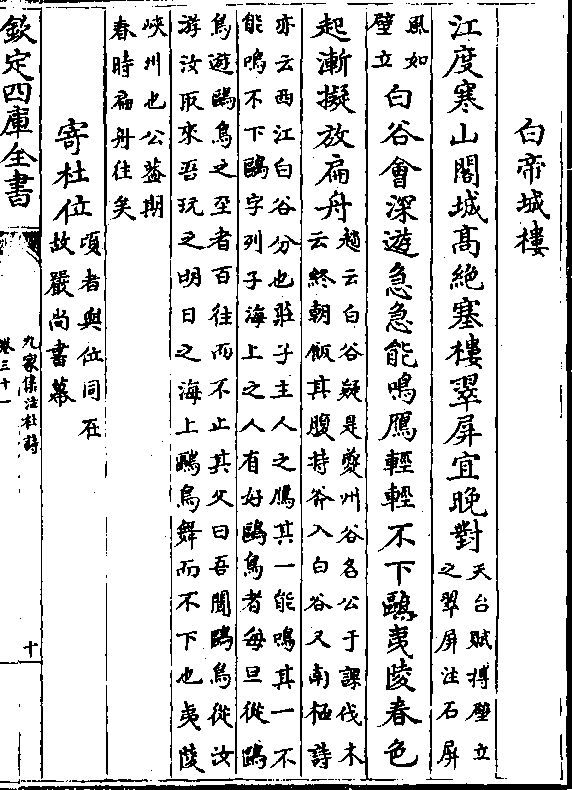 白帝城樓
江度寒山閣城髙絶塞樓翠屏宜晚對天台賦搏壁立
之翠屏注石屏
風如
壁立白谷會深遊急急能鳴鴈輕輕不下鷗夷陵春色
起漸擬放扁舟趙云白谷疑是夔州谷名公于課伐木
云終朝飯其腹持斧入白谷又南極詩
亦云西江白谷分也莊子主人之鴈其一能鳴其一不
能鳴不下鷗字列子海上之人有好鷗鳥者每旦從鷗
鳥遊鷗鳥之至者百往而不止其父曰吾聞鷗鳥從汝
游汝取來吾玩之明日之海上鷗鳥舞而不下也夷陵
峽州也公蓋期
春時扁舟往矣
寄杜位頃者與位同在
故嚴尚書幕
欽定四庫全書
九家集注杜詩
卷三十一
十